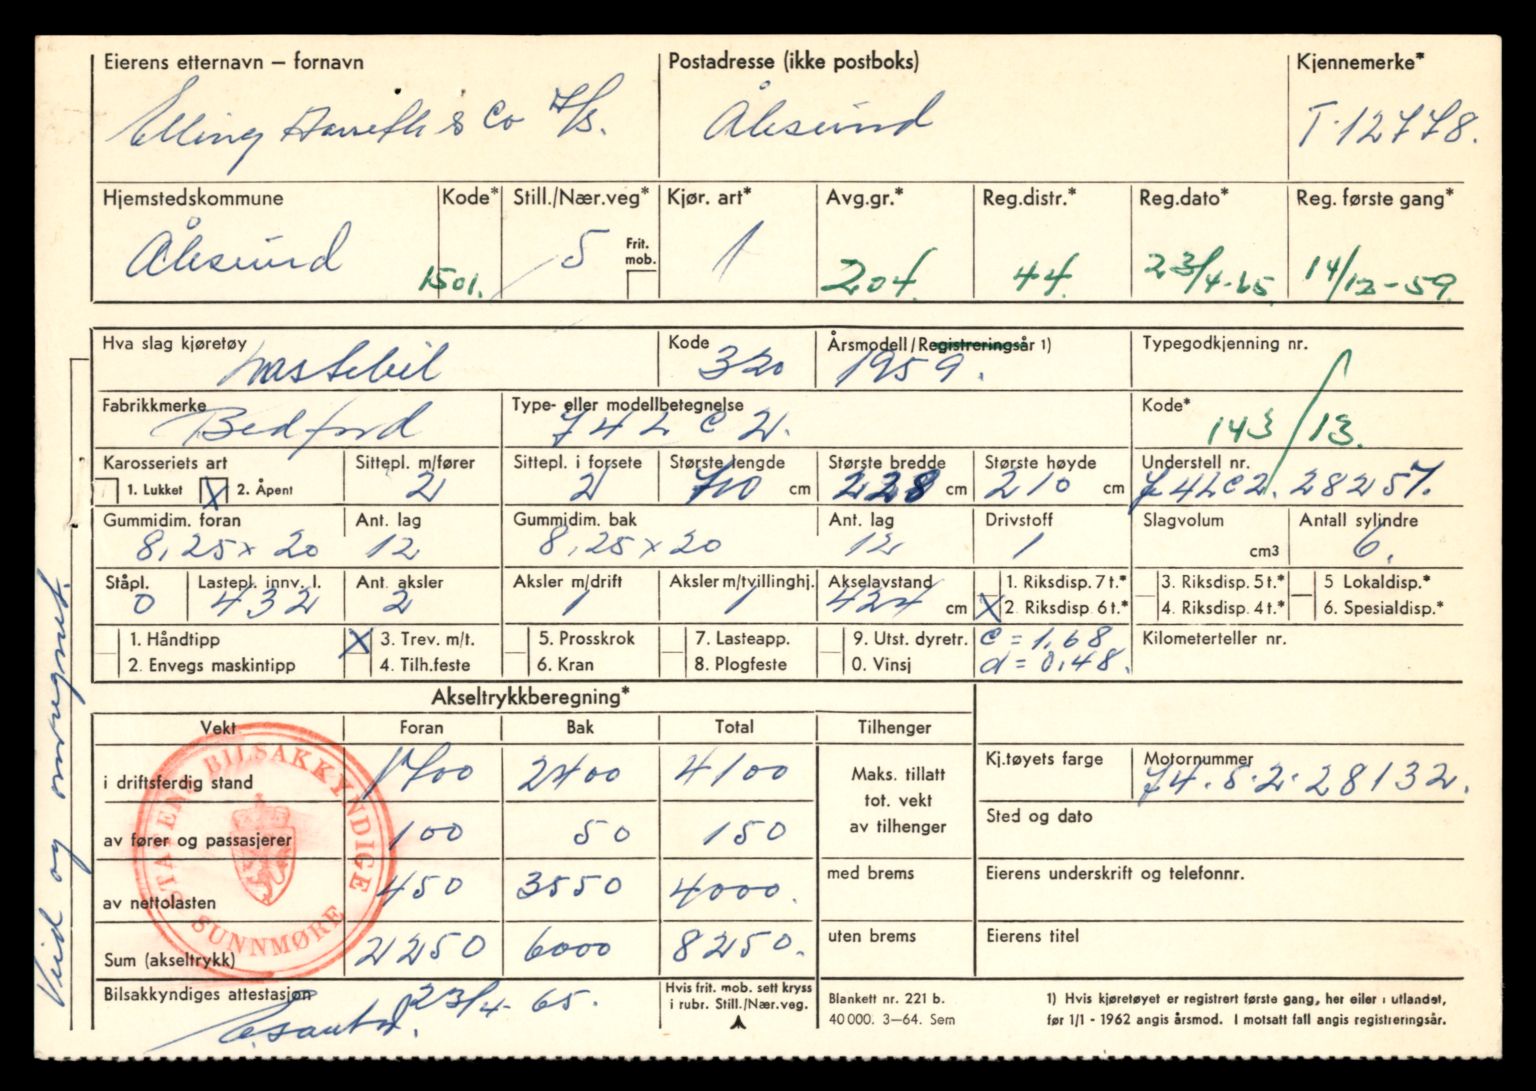 Eierens etternavn – fornavn Postadresse (ikke postboks) Kjennemerke*
Elling Aarseth & Co A/S. Ålesund T-12778.
Hjemstedskommune Kode* Still./Nær.veg* Kjør. art* Avg.gr.* Reg.distr.* Reg.dato* Reg. første gang*
Frit. mob.
Ålesund 1501. 5 1 204. 44. 23/4-65. 14/12-59.
Hva slag kjøretøy Kode Årsmodell/Registreringsår 1) Typegodkjenning nr.
Lastebil 320 1959.
Fabrikkmerke Type- eller modellbetegnelse Kode*
Bedford J4LC2. 143/13.
Karosseriets art Sittepl. m/fører Sittepl. i forsete Største lengde Største bredde Største høyde Understell nr.
1. Lukket X 2. Åpent 2 2 710 cm 228 cm 210 cm J4LC2. 28257.
Gummidim. foran Ant. lag Gummidim. bak Ant. lag Drivstoff Slagvolum Antall sylindre
8,25 x 20 12 8,25 x 20 12 1 cm3 6.
Ståpl. Lastepl. innv. l. Ant. aksler Aksler m/drift Aksler m/tvillinghj. Akselavstand 1. Riksdisp. 7 t.* 3. Riksdisp. 5 t.* 5 Lokaldisp.*
0 432 2 1 1 424 cm X 2. Riksdisp. 6 t.* 4. Riksdisp. 4 t.* 6. Spesialdisp.*
1. Håndtipp X 3. Trev. m/t. 5. Prosskrok 7. Lasteapp. 9. Utst. dyretr. c = 1,68 Kilometerteller nr.
2. Envegs maskintipp 4. Tilh.feste 6. Kran 8. Plogfeste 0. Vinsj d = 0,48.
Akseltrykkberegning*
Vekt Foran Bak Total Tilhenger
i driftsferdig stand 1700 2400 4100 Maks. tillatt tot. vekt av tilhenger Kj.tøyets farge Motornummer
J4.S.2.28132.
av fører og passasjerer 100 50 150 Sted og dato
av nettolasten 450 3550 4000. med brems Eierens underskrift og telefonnr.
Sum (akseltrykk) 2250 6000 8250. uten brems Eierens titel
Bilsakkyndiges attestasjon 23/4-65.
Hvis frit. mob. sett kryss
i rubr. Still./Nær.veg.
Blankett nr. 221 b.
40 000. 3–64. Sem
1) Hvis kjøretøyet er registrert første gang, her eller i utlandet,
før 1/1 - 1962 angis årsmod. I motsatt fall angis registreringsår.
STATENS BILSAKKYNDIGE
SUNNMØRE
Veid og omregnet.